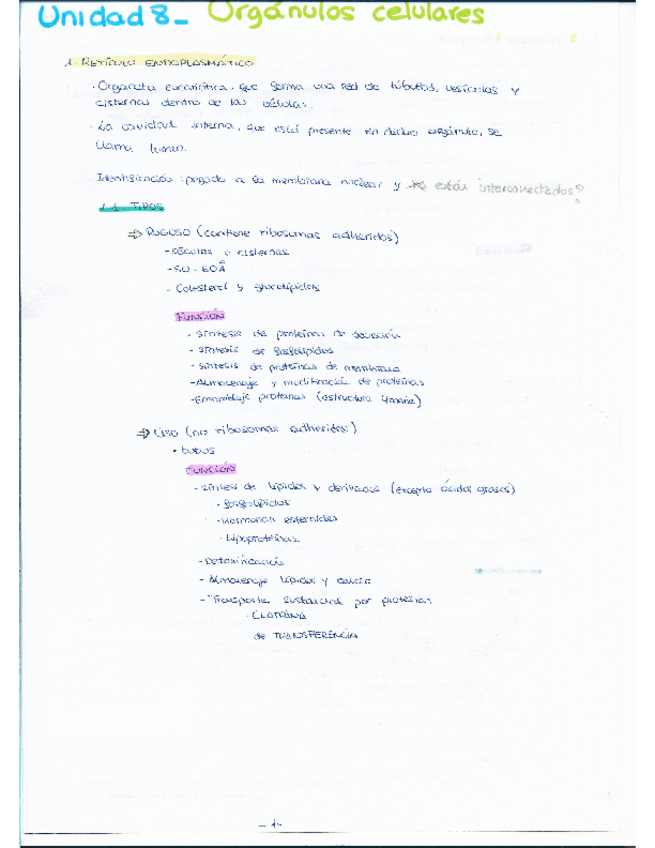 Unidad 8_ Orgánulos celulares
1. RETÍCULO ENDOPLASMÁTICO
· Organela eucariótica que forma una red de túbulos, vesículas y
cisternas dentro de las células.
· La cavidad interna, que está presente en dicho orgánulo, se
llama lumen.
Identificación: pegado a la membrana nuclear y no están interconectados?
1.1. TIPOS
⇒ RUGOSO (contiene ribosomas adheridos)
- Sáculos o cisternas
- 50-60Å
- Colesterol y glucolípidos
FUNCIÓN
- Síntesis de proteínas de secreción
- Síntesis de fosfolípidos
- Síntesis de proteínas de membrana
- Almacenaje y modificación de proteínas
- Ensamblaje proteínas (estructura 4naria)
⇒ LISO (no ribosomas adheridos)
· tubos
FUNCIÓN
- Síntesis de lípidos y derivados (excepto ácidos grasos)
· fosfolípidos
· Hormonas esteroides
· Lipoproteínas
- Detoxificación
- Almacenaje lípidos y calcio
- Transporte sustancias por proteínas
· CLATRINA
de TRANSFERENCIA
- 1 -